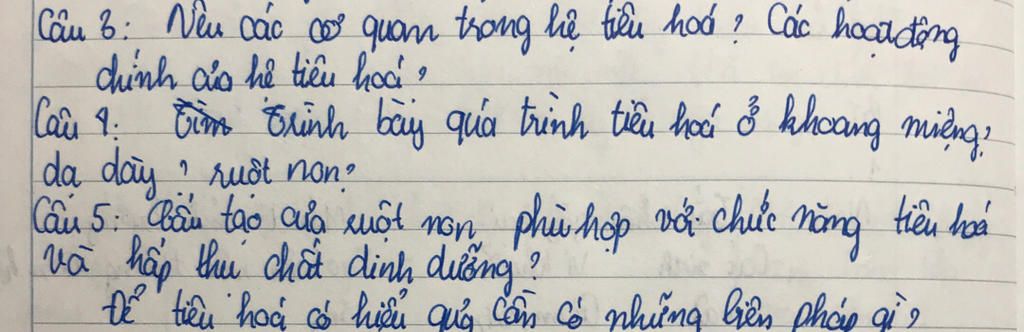 Câu 3: Nêu các cơ quan trong hệ tiêu hoá? Các hoạt động
chính của hệ tiêu hoá?
Câu 4: Trình bày quá trình tiêu hoá ở khoang miệng?
dạ dày? ruột non?
Câu 5: Cấu tạo của ruột non phù hợp với chức năng tiêu hoá
và hấp thu chất dinh dưỡng?
Để tiêu hoá có hiệu quả cần có những biện pháp gì?